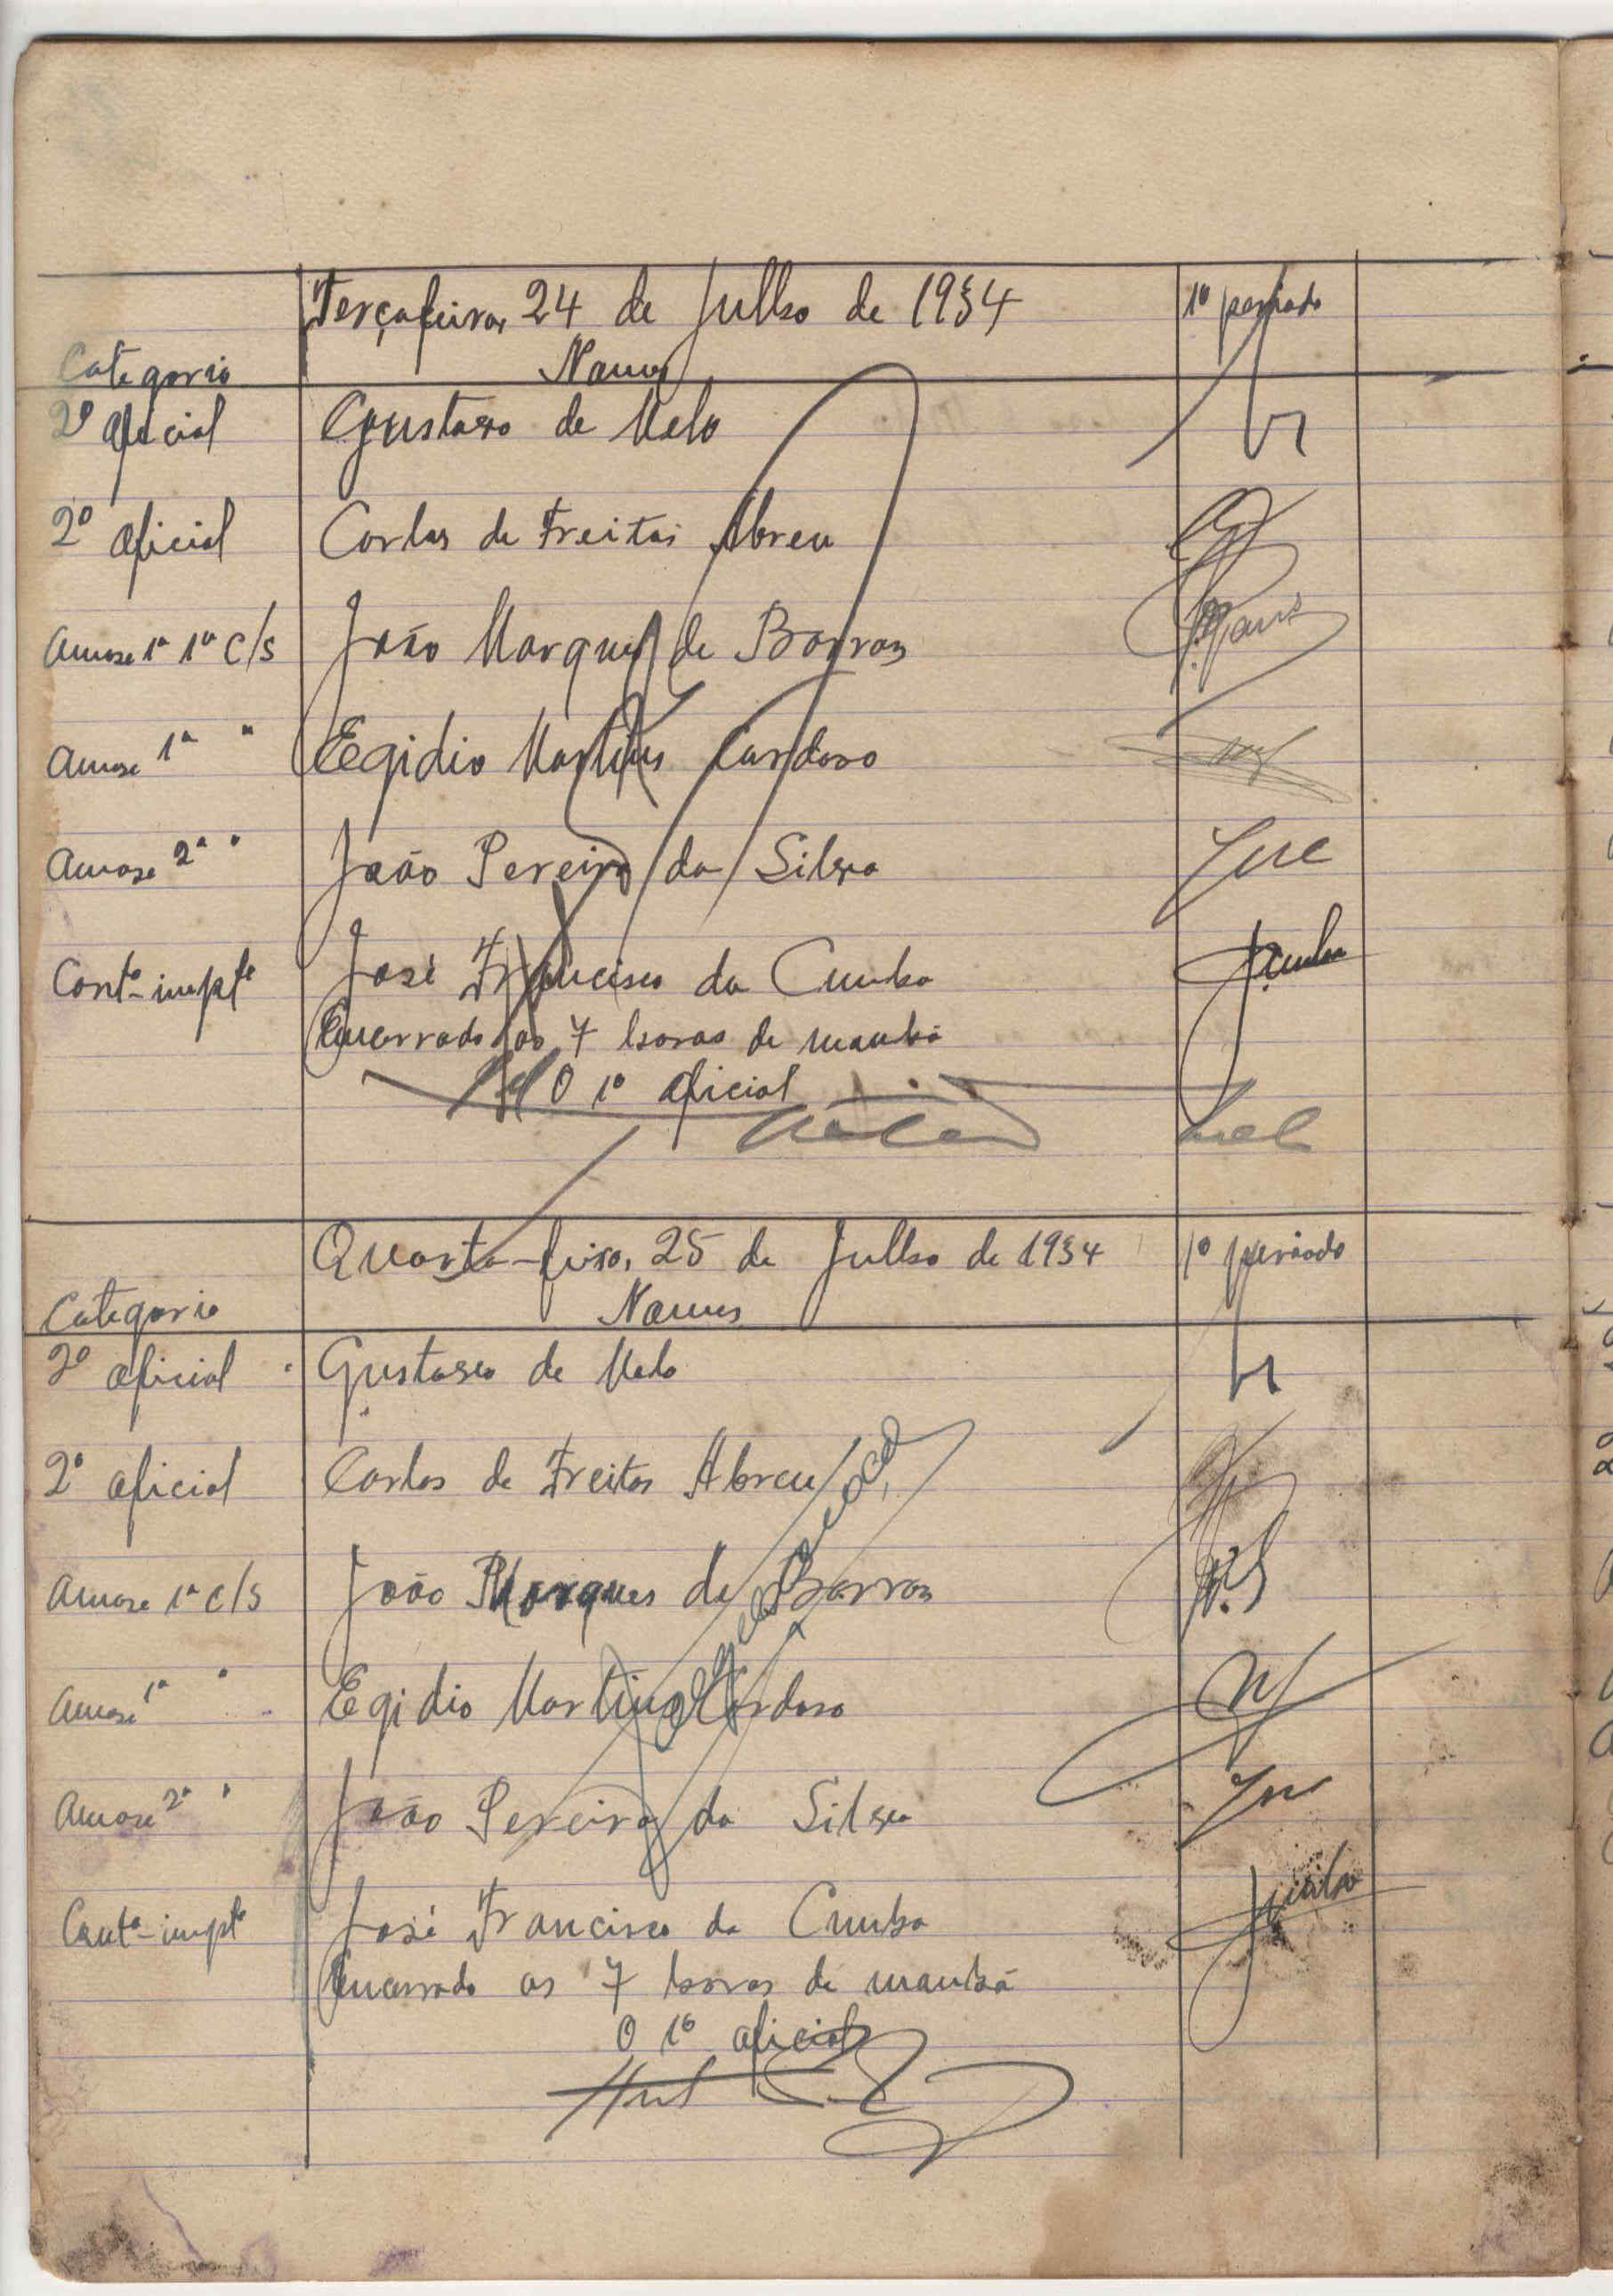 Terça feira, 24 de Julho de 1934 1º periodo
Categoria Nomes
2º oficial Gustavo de Melo
2º oficial Carlos de Freitas Abreu
1ª 1ª c/s João Marques de Barros
1ª " Egidio Martins Cardoso
2ª " João Pereira da Silva
Contº impte José Francisco da Cunha Cunha
Encerrado as 7 horas da manhã
O 1º oficial
Quarta-feira, 25 de Julho de 1934 1º periodo
Categoria Nomes
2º oficial Gustavo de Melo
2º oficial Carlos de Freitas Abreu
1ª c/s João Marques de Barros
1ª " Egidio Martins Cardoso
2ª " João Pereira da Silva
Contº impte José Francisco da Cunha Cunha
Encerrado as 7 horas da manhã
O 1º oficial